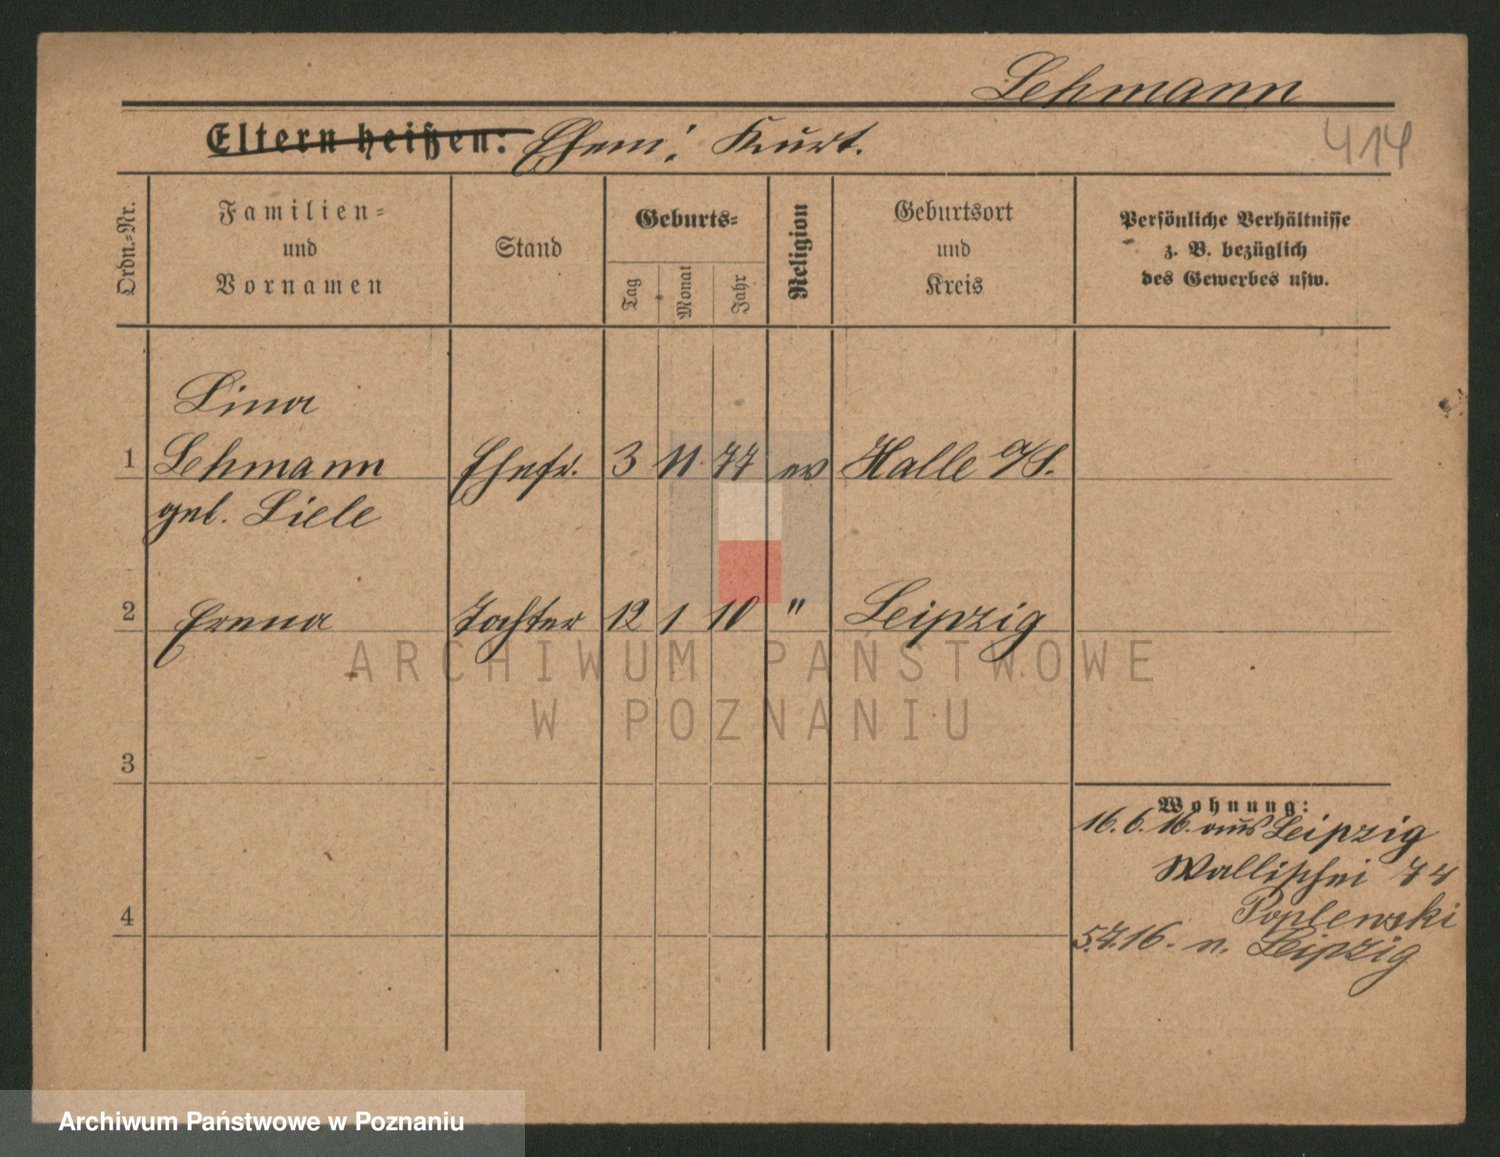 Lehmann
Eltern heißen: Ehem: Kurt.
414
Ordn.-Nr.
Familien-
und
Vornamen
Stand
Geburts-
Tag
Monat
Jahr
Religion
Geburtsort
und
Kreis
Persönliche Verhältnisse
z. B. bezüglich
des Gewerbes usw.
Lina
1 Lehmann Ehefr. 3 11 77 ev Halle a/S.
geb. Liele
2 Erena Tochter 12 1 10 " Leipzig
ARCHIWUM PAŃSTWOWE
W POZNANIU
3
Wohnung:
16.6.16. aus Leipzig
Wallischei 74
Poplewski
4
5.7.16. n. Leipzig
Archiwum Państwowe w Poznaniu